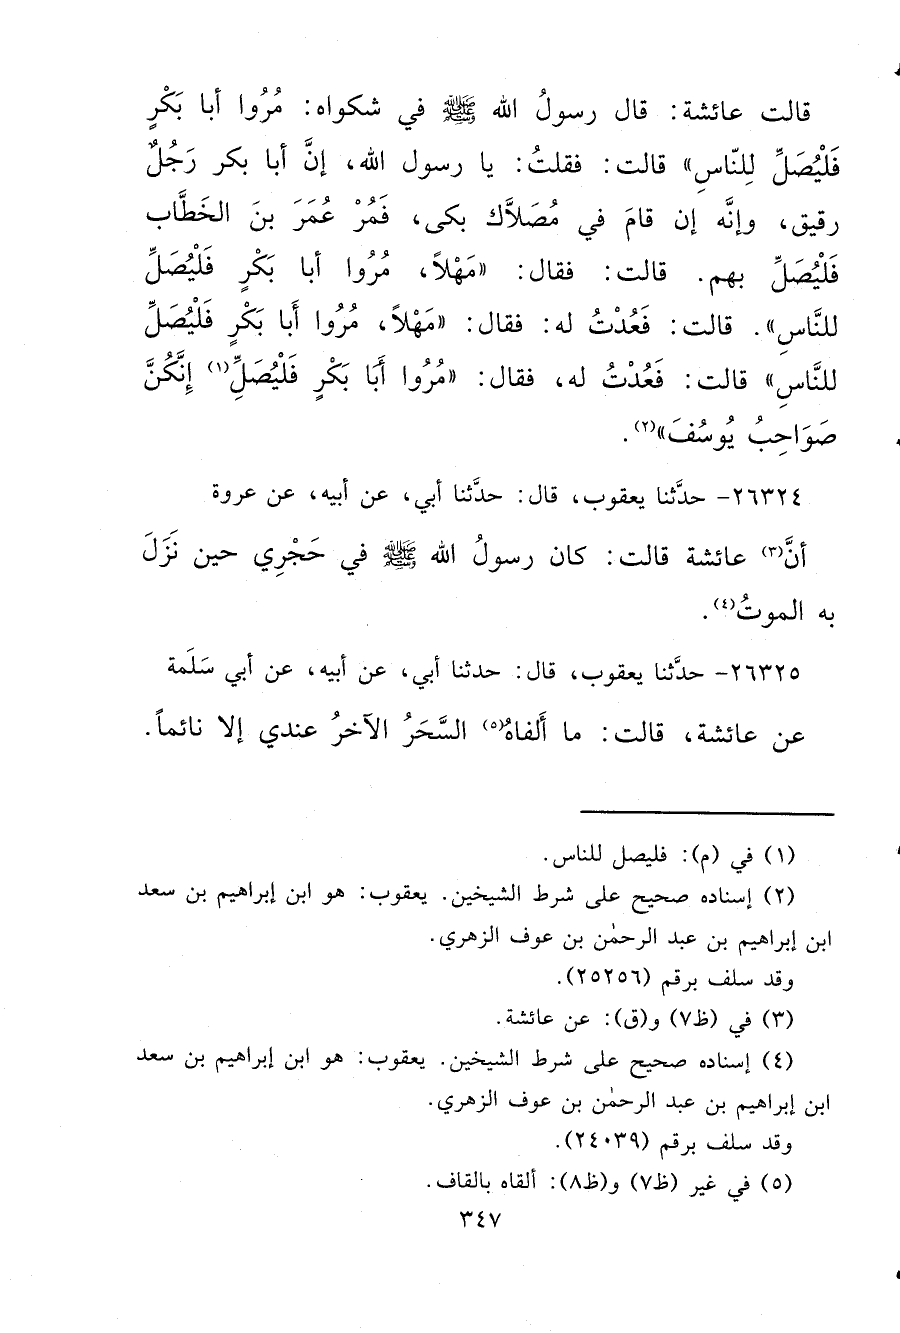 قالت عائشة: قال رسولُ الله ﷺ في شكواه: مُرُوا أبا بَكْرٍ
فَلْيُصَلِّ لِلنّاسِ» قالت: فقلتُ: يا رسول الله، إنَّ أبا بكر رَجُلٌ
رقيق، وإنَّه إن قامَ في مُصَلاَّك بكى، فَمُرْ عُمَرَ بنَ الخَطَّاب
فَلْيُصَلِّ بهم. قالت: فقال: «مَهْلاً، مُرُوا أبا بَكْرٍ فَلْيُصَلِّ
للنَّاسِ». قالت: فَعُدْتُ له: فقال: «مَهْلاً، مُرُوا أَبا بَكْرٍ فَلْيُصَلِّ
للنَّاسِ» قالت: فَعُدْتُ له، فقال: «مُرُوا أَبَا بَكْرٍ فَلْيُصَلِّ(١) إنَّكُنَّ
صَوَاحِبُ يُوسُفَ»(٢).
٢٦٣٢٤- حدَّثنا يعقوب، قال: حدَّثنا أبي، عن أبيه، عن عروة
أنَّ(٣) عائشة قالت: كان رسولُ الله ﷺ في حَجْرِي حين نَزَلَ
به الموتُ(٤).
٢٦٣٢٥- حدَّثنا يعقوب، قال: حدثنا أبي، عن أبيه، عن أبي سَلَمة
عن عائشة، قالت: ما أَلفاهُ(٥) السَّحَرُ الآخرُ عندي إلا نائماً.
(١) في (م): فليصل للناس.
(٢) إسناده صحيح على شرط الشيخين. يعقوب: هو ابن إبراهيم بن سعد
ابن إبراهيم بن عبد الرحمٰن بن عوف الزهري.
وقد سلف برقم (٢٥٢٥٦).
(٣) في (ظ٧) و(ق): عن عائشة.
(٤) إسناده صحيح على شرط الشيخين. يعقوب: هو ابن إبراهيم بن سعد
ابن إبراهيم بن عبد الرحمٰن بن عوف الزهري.
وقد سلف برقم (٢٤٠٣٩).
(٥) في غير (ظ٧) و(ظ٨): ألقاه بالقاف.
٣٤٧